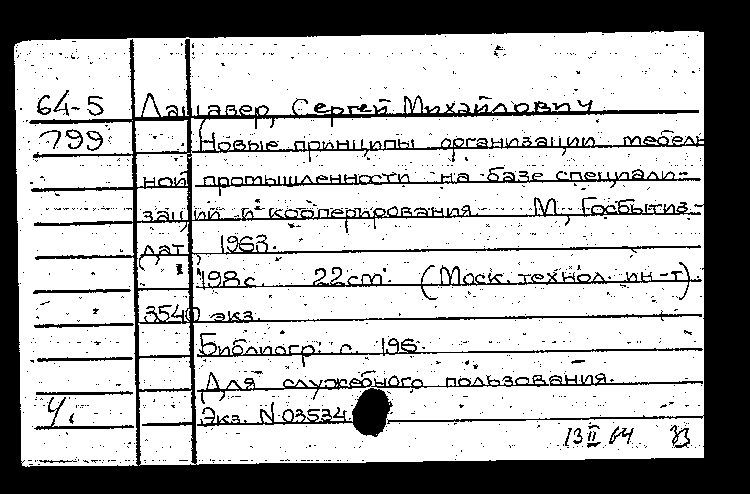 64-5 Лащавер, Сергей Михайлович
799 Новые принципы организации мебель-
ной промышленности на базе специали-
зации и кооперирования М., Госбытиз-
дат, 1963.
198 с. 22 cm. (Моск. технол. ин-т).
3540 экз.
Библиогр.: с. 196.
Для служебного пользования.
Ч. Экз. N 03534
13 II 64